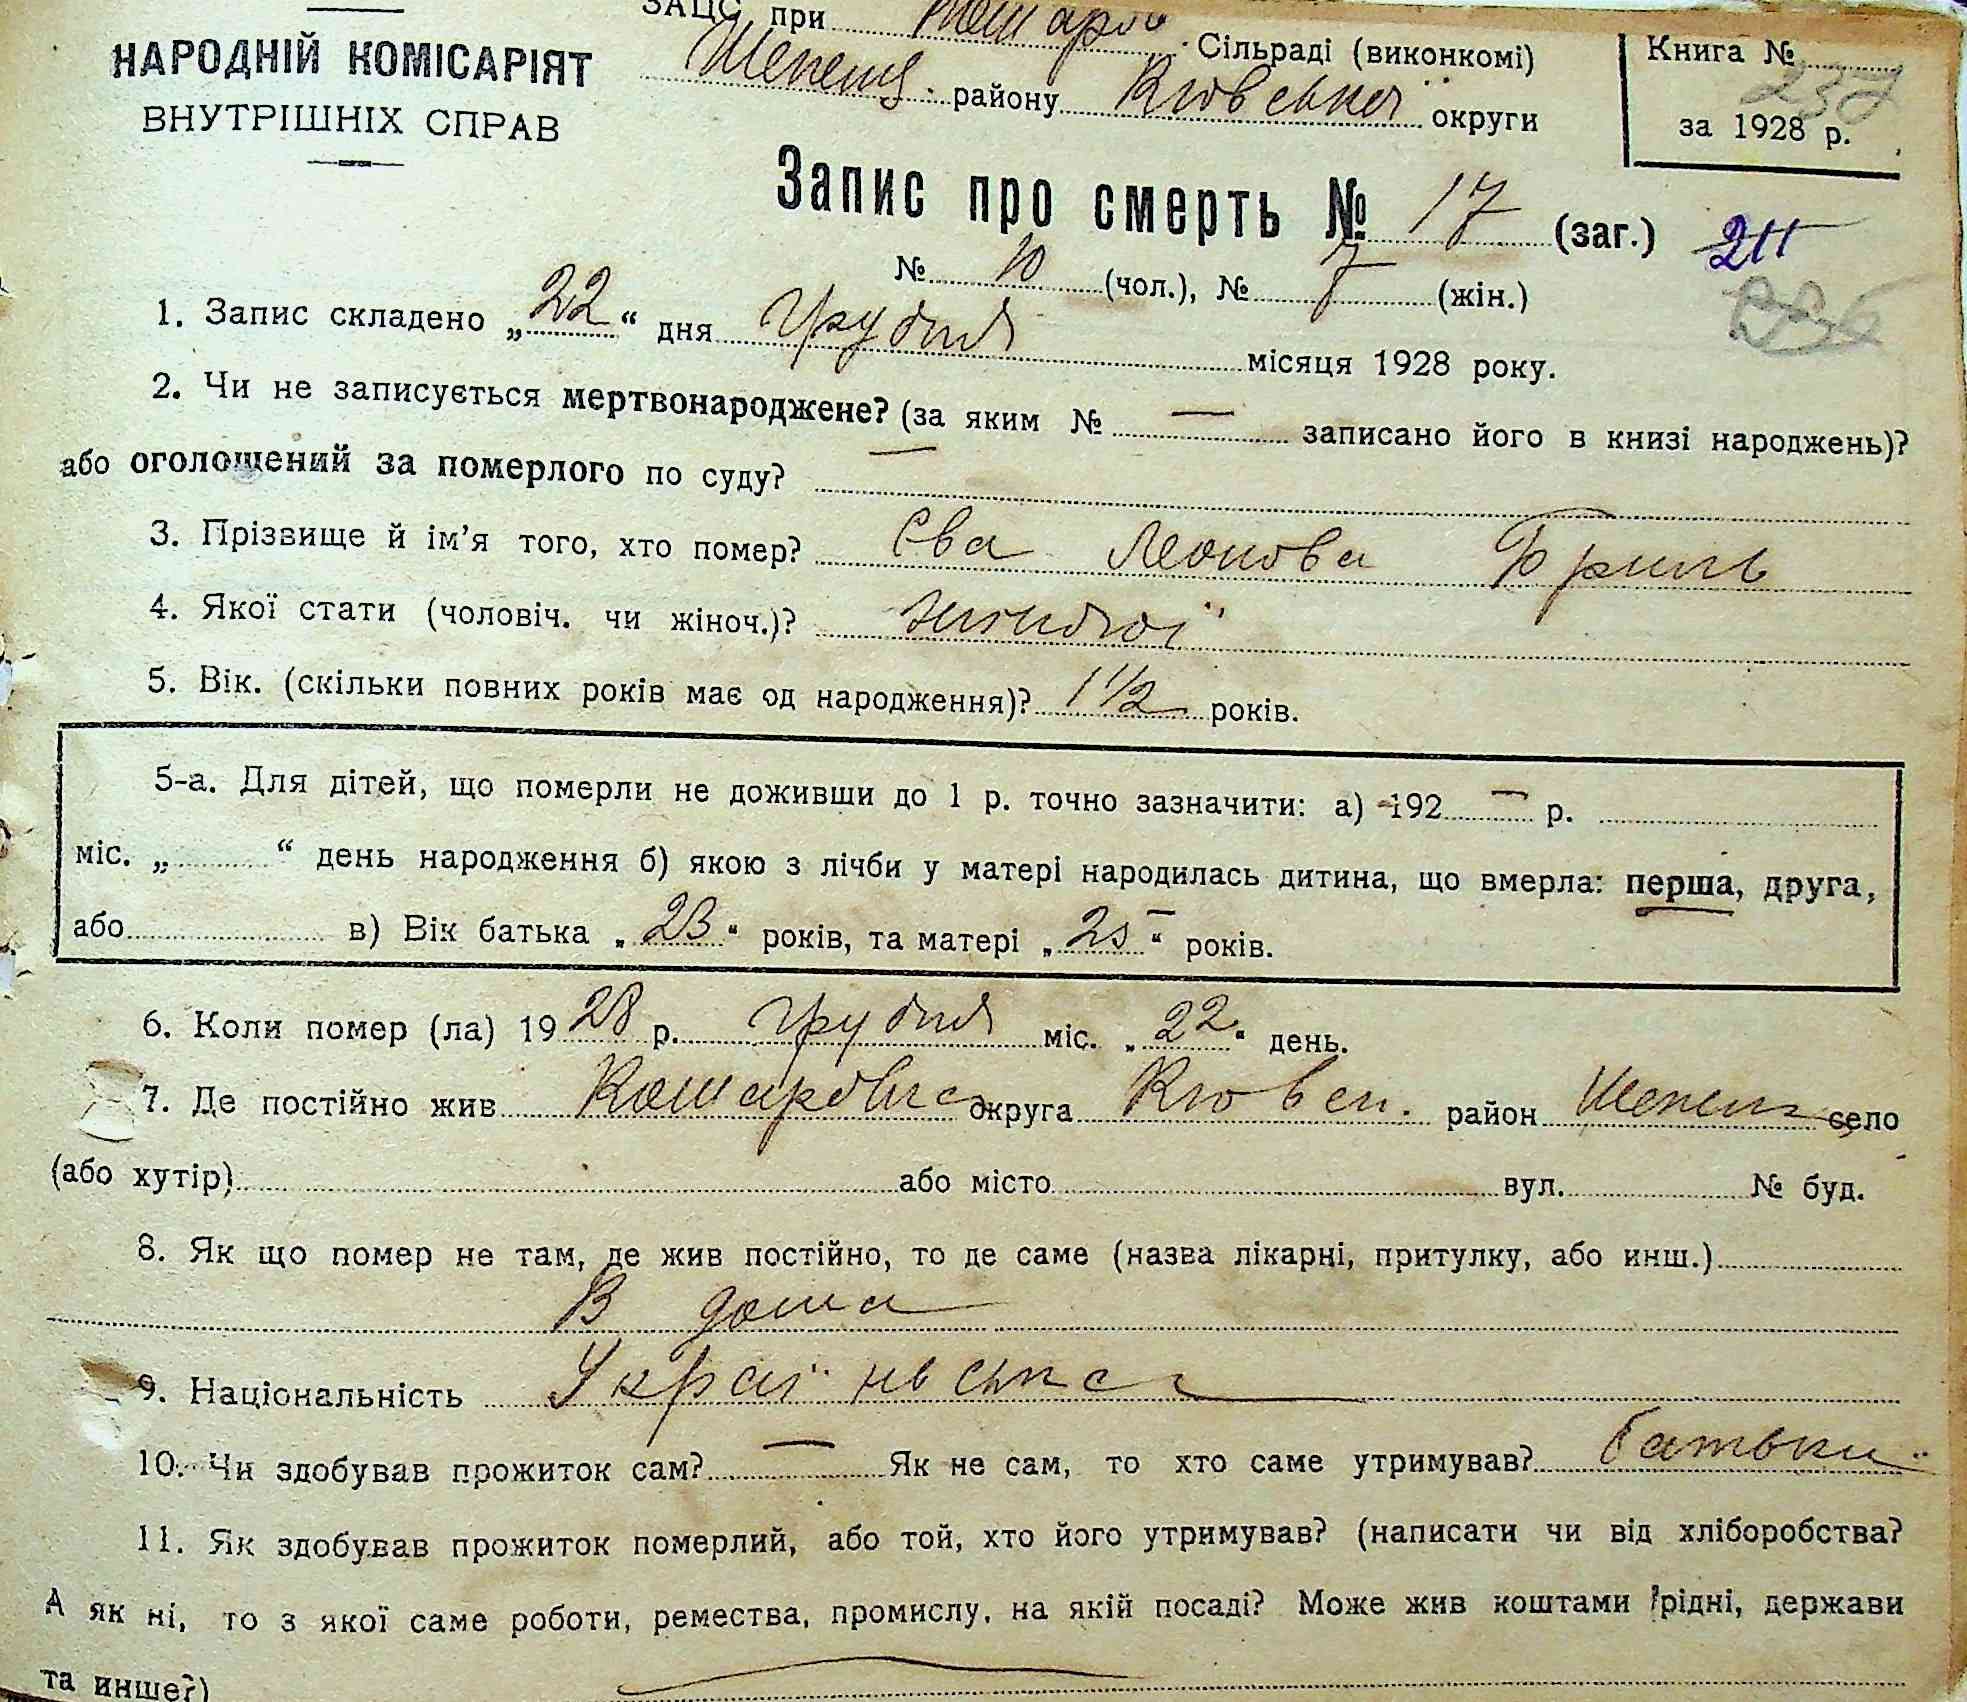 НАРОДНІЙ КОМІСАРІЯТ
ВНУТРІШНІХ СПРАВ
ЗАЦС при Кошаров. Сільраді (виконкомі)
району Київської округи
Книга №
за 1928 р.
Запис про смерть № 17 (заг.)
№ 10 (чол.), № 7 (жін.)
1. Запис складено „22“ дня Грудня місяця 1928 року.
2. Чи не записується мертвонароджене? (за яким № — записано його в книзі народжень)?
або оголошений за померлого по суду? —
3. Прізвище й ім'я того, хто помер? Єва Леонова Бриль
4. Якої стати (чоловіч. чи жіноч.)? жіночої
5. Вік. (скільки повних років має од народження)? 1 1/2 років.
5-а. Для дітей, що померли не доживши до 1 р. точно зазначити: а) 192 — р.
міс. „ “ день народження б) якою з лічби у матері народилась дитина, що вмерла: перша, друга,
або в) Вік батька „23“ років, та матері „25“ років.
6. Коли помер (ла) 1928 р. Грудня міс. „22“ день.
7. Де постійно жив округа район село
(або хутір) або місто вул. № буд.
8. Як що помер не там, де жив постійно, то де саме (назва лікарні, притулку, або инш.)
В дома
9. Національність Українська
10. Чи здобував прожиток сам? — Як не сам, то хто саме утримував? батьки
11. Як здобував прожиток померлий, або той, хто його утримував? (написати чи від хліборобства?
А як ні, то з якої саме роботи, ремества, промислу, на якій посаді? Може жив коштами рідні, держави
та инше?)